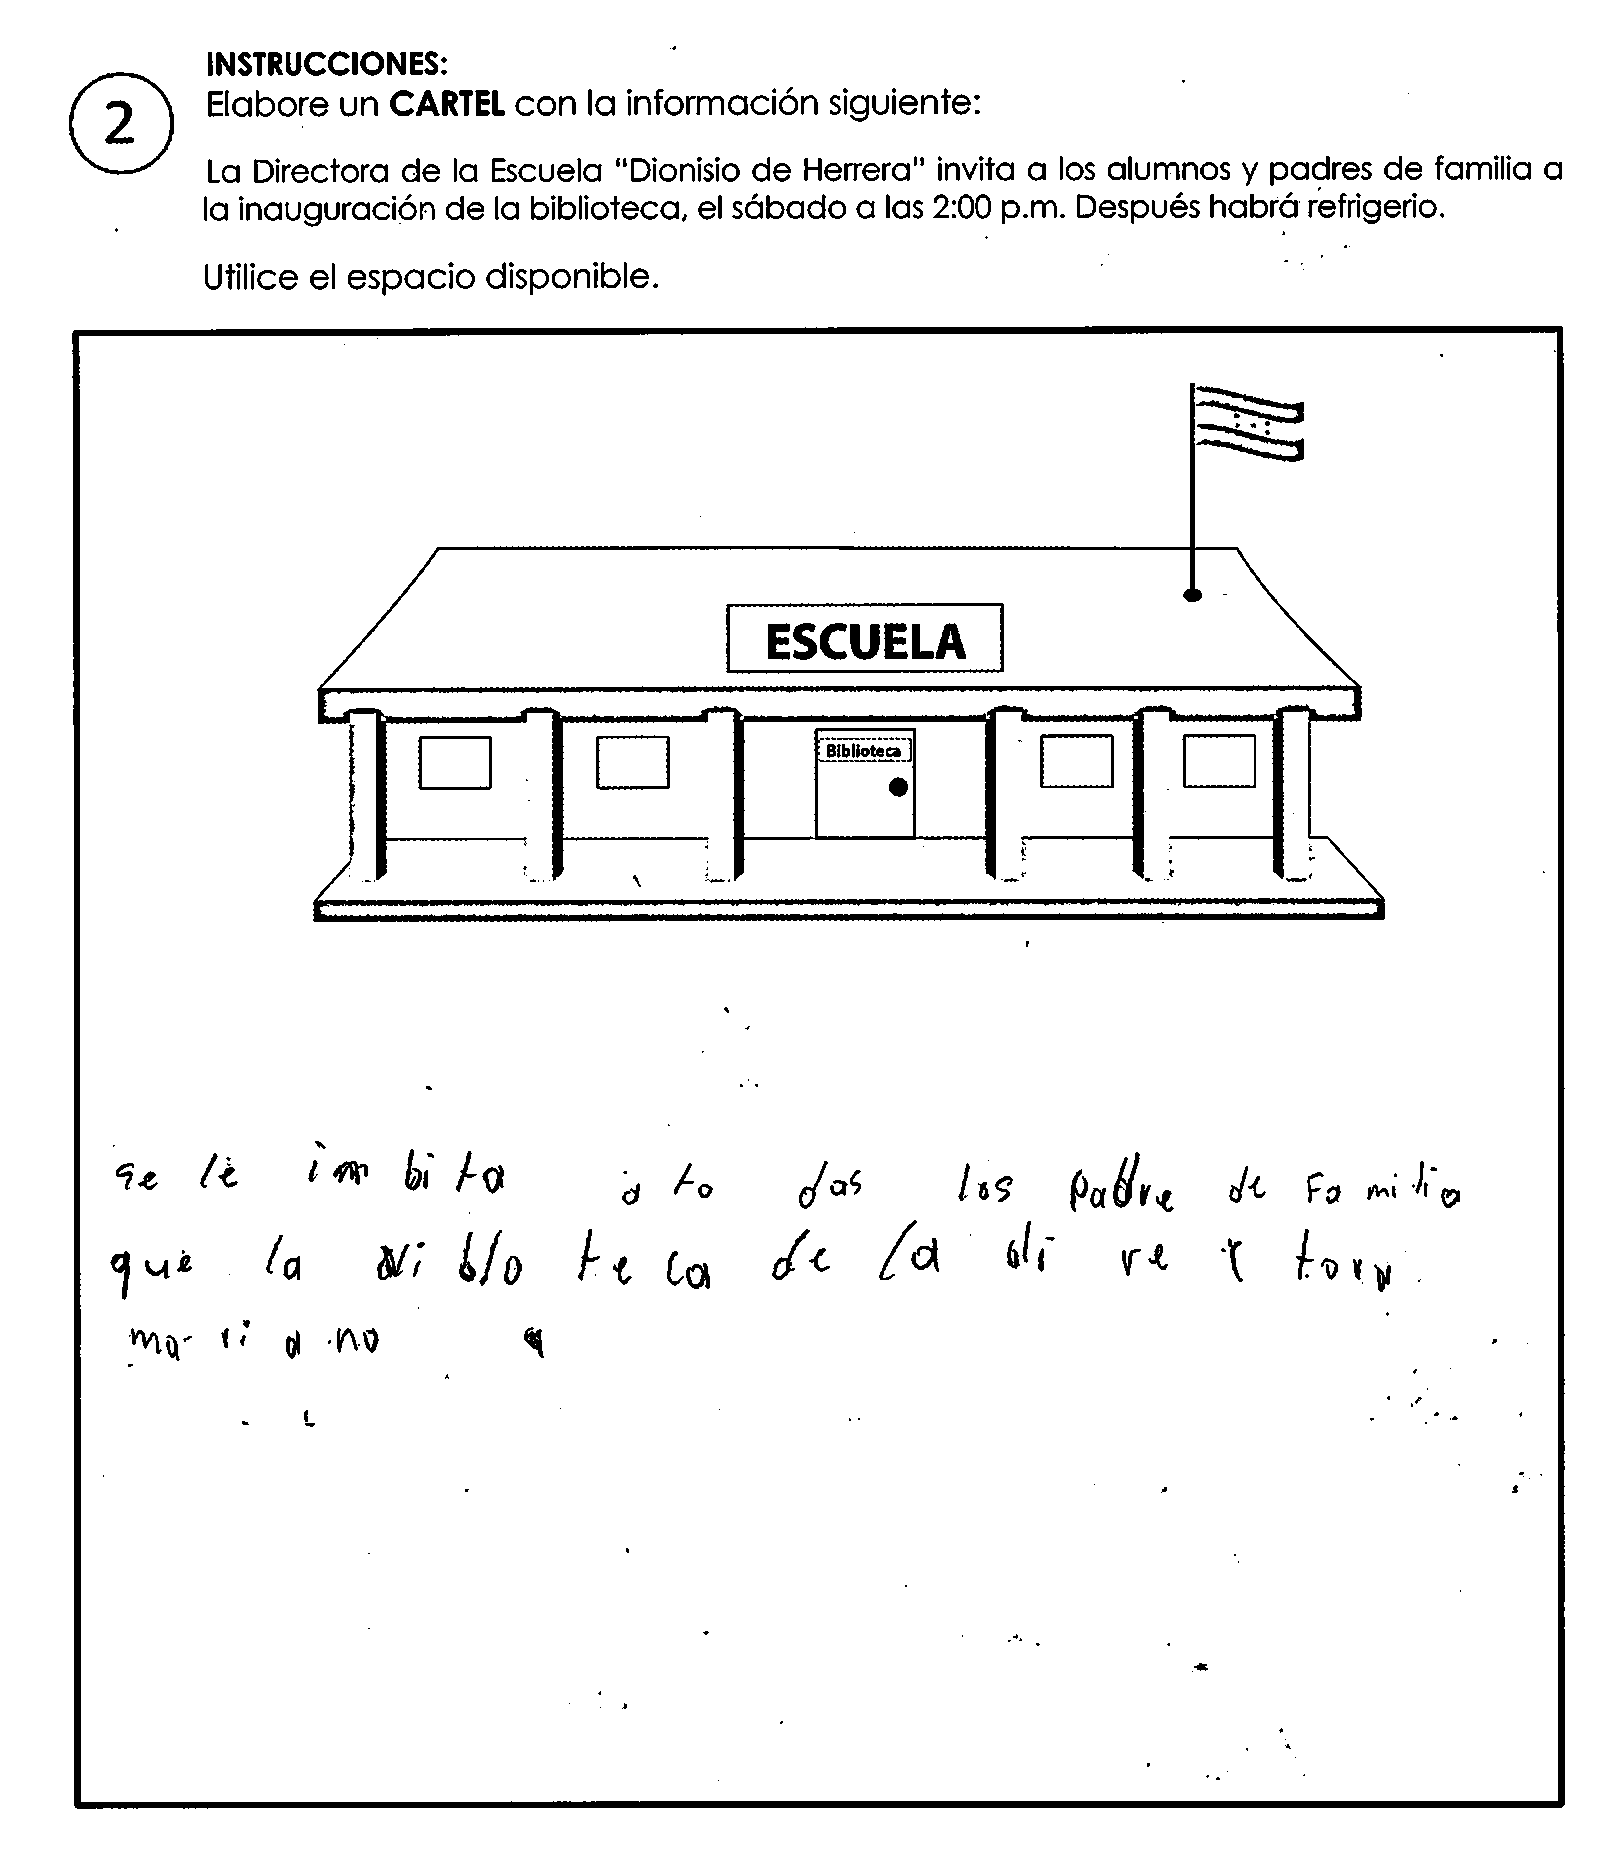 INSTRUCCIONES:
2
Elabore un CARTEL con la información siguiente:
La Directora de la Escuela "Dionisio de Herrera" invita a los alumnos y padres de familia a
la inauguración de la biblioteca, el sábado a las 2:00 p.m. Después habrá refrigerio.
Utilice el espacio disponible.
ESCUELA
Biblioteca
se le im bi ta a to das los padre de Fa mi lia
que la vi blo te ca de la di re tora
ma ri a no